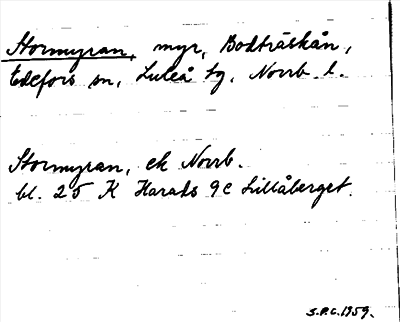 Stormyran, myr, Bodträskån,
Edefors sn, Luleå tg, Norrb. l.
Stormyran, ek Norrb.
bl. 25 K Harads 9c Lillåberget.
S.P.C. 1959.